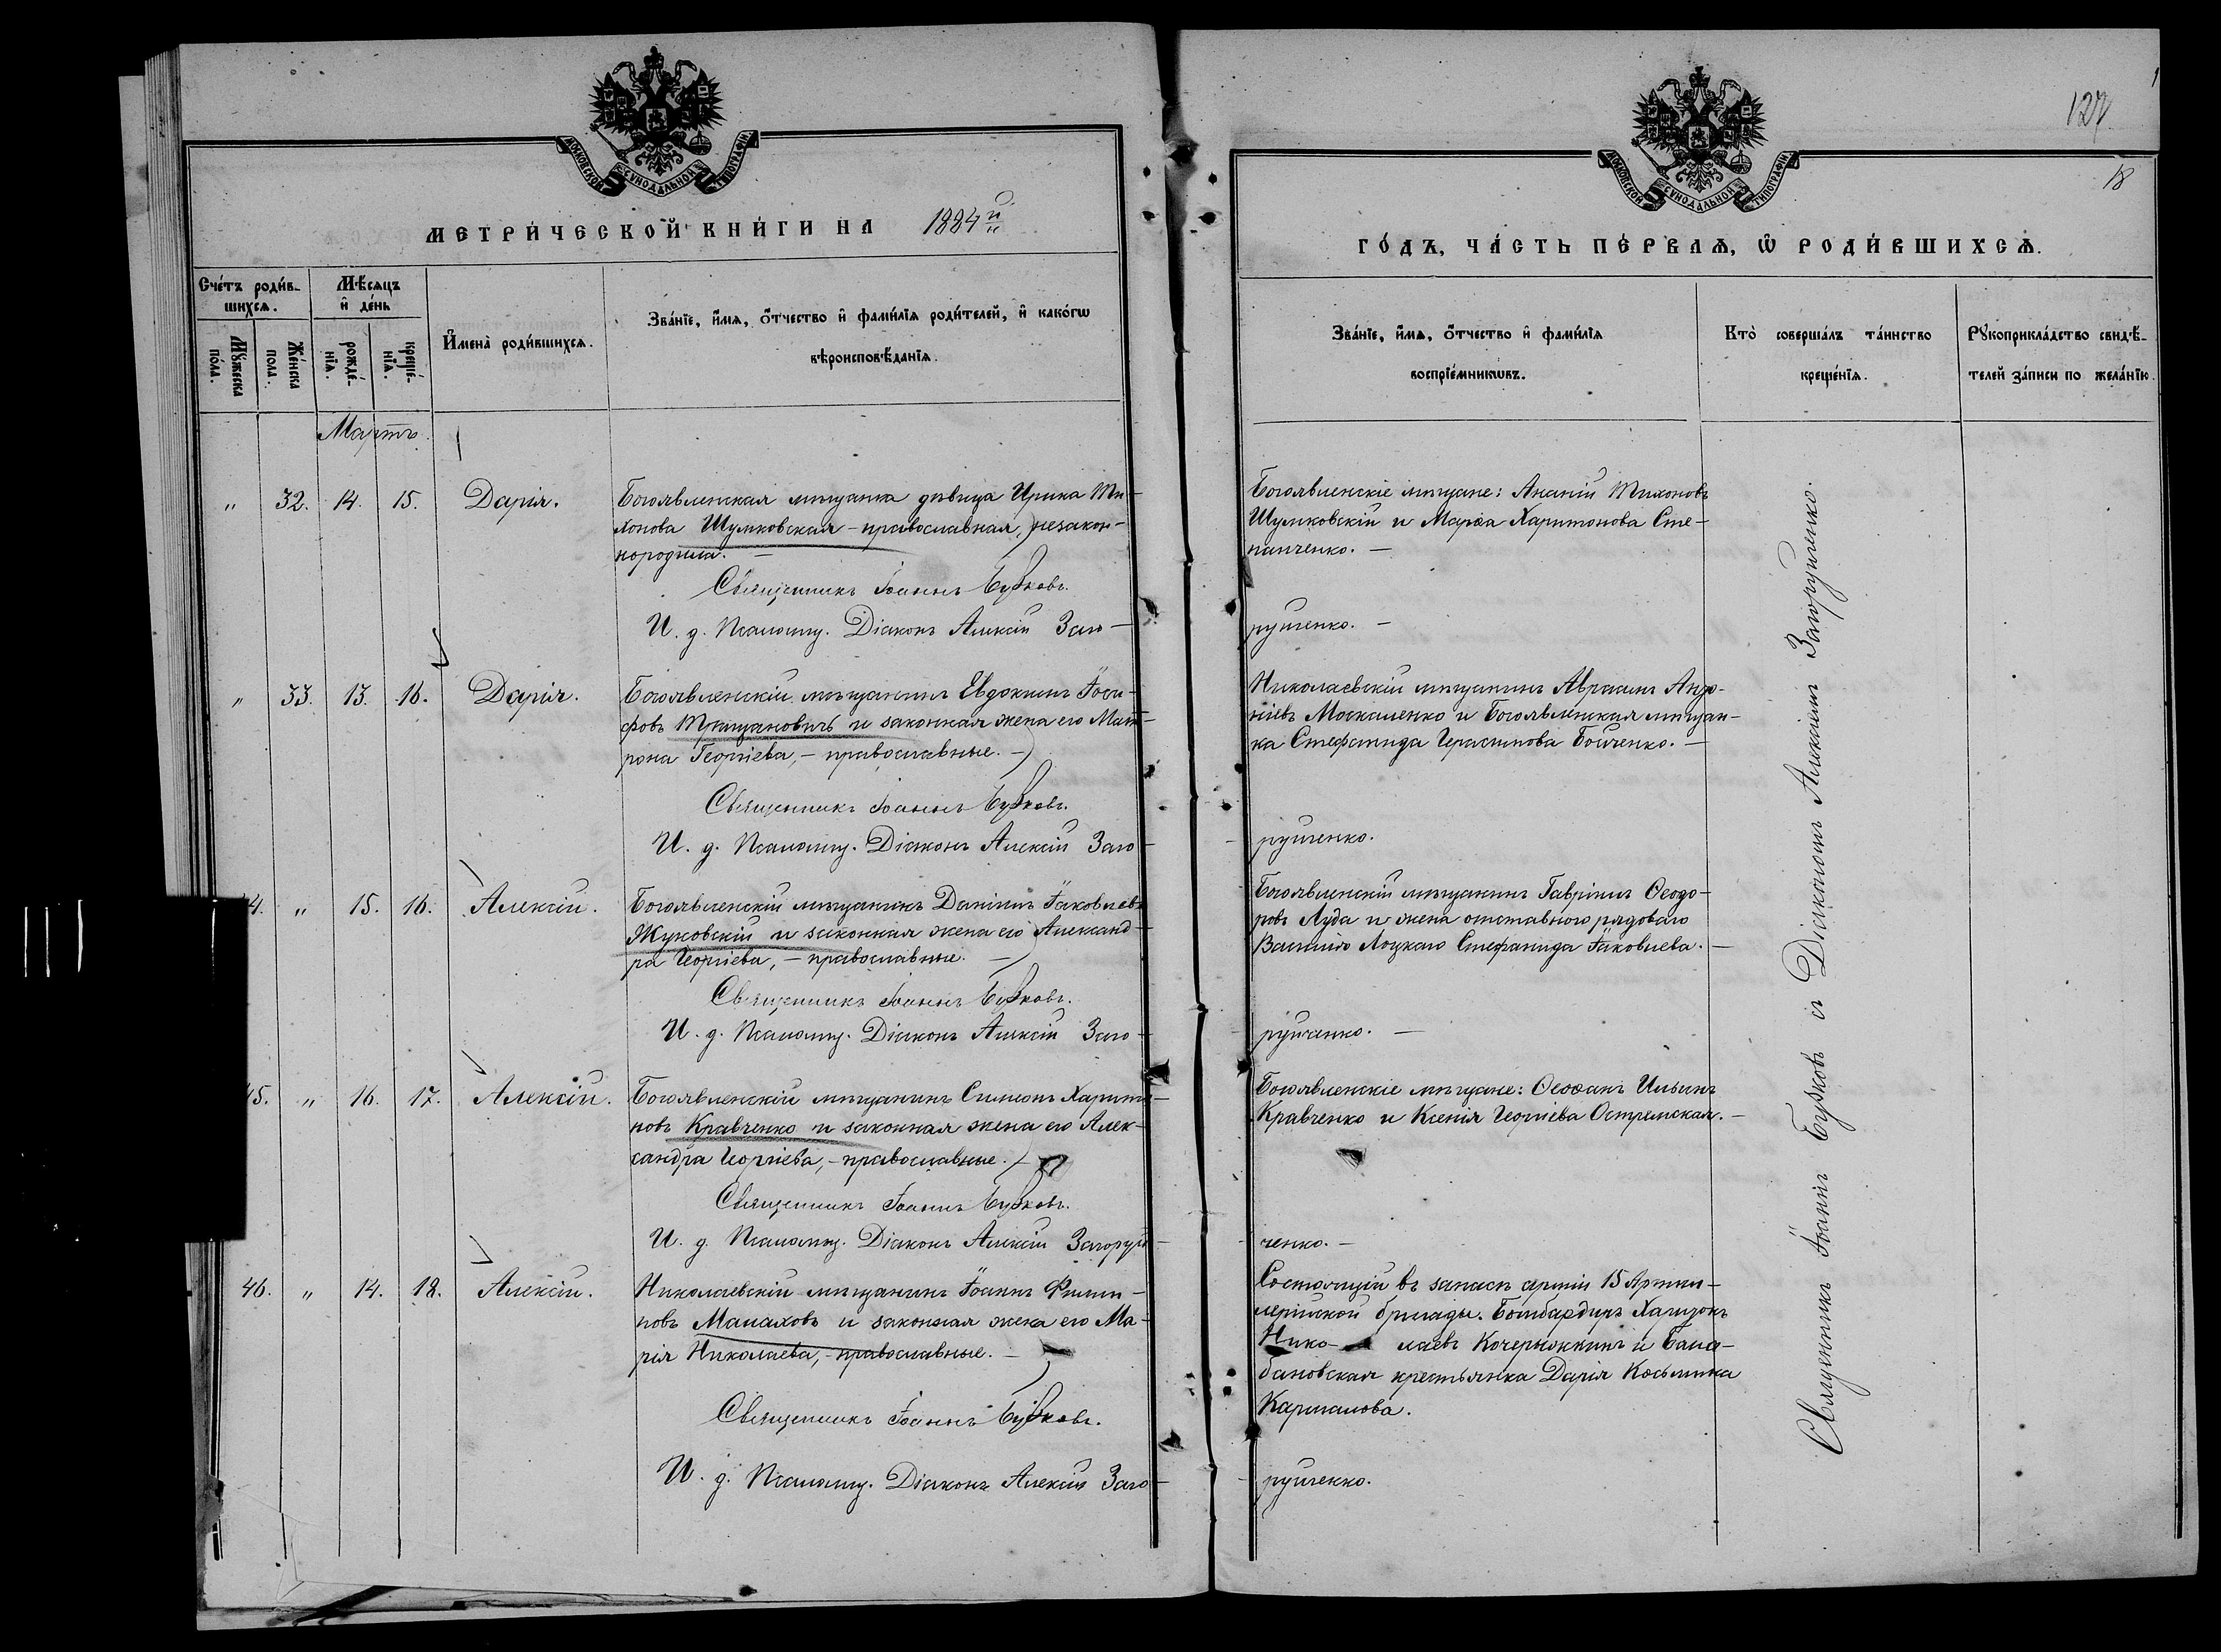 МОСКОВСКОЙ СУНОДАЛЬНОЙ ТИПОГРАФІИ
МЕТРИ́ЧЕСКОЙ КНИ́ГИ НА 1884й
Сче́тъ роди́в-
шихся.
Мꙋ́жеска
по́ла.
Же́нска
пола.
Мѣ́сяцъ
и҆ де́нь
рожде́-
нїѧ.
креще́-
нїѧ.
И҆мена̀ роди́вшихся.
Зва́нїе, и҆́мѧ, ѻ҆́тчество и҆ фами́лїѧ роди́телей, и҆ како́гѡ
вѣроисповѣ́данїѧ.
Мартъ.
" 32. 14. 15. Дарія.
Богоявленская мѣщанка дѣвица Ирина Ти-
хонова Шумковская - православная, незакон-
нородила. -
Священникъ Іоаннъ Бубковъ.
И. д. Псаломщ. Діаконъ Алексій Заго-
" 33. 13. 16. Дарія.
Богоявленскій мѣщанинъ Евдокимъ Іоси-
фовъ Трищановичъ и законная жена его Мат-
рона Георгіева, - православные. -
Священникъ Іоаннъ Бубковъ.
И. д. Псаломщ. Діаконъ Алексій Заго-
4. " 15. 16. Алексій.
Богоявленскій мѣщанинъ Даніилъ Іаковлевъ
Жуковскій и законная жена его Александ-
ра Георгіева, - православные. -
Священникъ Іоаннъ Бубковъ.
И. д. Псаломщ. Діаконъ Алексій Заго-
45. " 16. 17. Алексій.
Богоявленскій мѣщанинъ Симеонъ Харито-
новъ Кравченко и законная жена его Алек-
сандра Георгіева, - православные. -
Священникъ Іоаннъ Бубковъ.
И. д. Псаломщ. Діаконъ Алексій Загоруй-
46. " 14. 18. Алексій.
Николаевскій мѣщанинъ Іоаннъ Филип-
повъ Малаховъ и законная жена его Ма-
рія Николаева, - православные. -
Священникъ Іоаннъ Бубковъ.
И. д. Псаломщ. Діаконъ Алексій Заго-
127
18
МОСКОВСКОЙ СУНОДАЛЬНОЙ ТИПОГРАФІИ
ГО́ДЪ, ЧА́СТЬ ПЕ́РВАѦ, Ѽ РОДИ́ВШИХСѦ.
Зва́нїе, и҆́мѧ, ѻ҆́тчество и҆ фами́лїѧ
воспрїе́мникѡвъ.
Кто̀ соверша́лъ та́инство
креще́нїѧ.
Рꙋкоприкла́дство свидѣ́-
телей за́писи по жела́нїю.
Богоявленскіе мѣщане: Ананій Тихоновъ
Шумковскій и Марѳа Харитонова Сте-
панченко. -
руйченко. -
Николаевскій мѣщанинъ Авраамъ Андро-
ніевъ Москаленко и Богоявленская мѣщан-
ка Стефанида Герасимова Бойченко. -
руйченко.
Богоявленскій мѣщанинъ Гавріилъ Ѳеодо-
ровъ Луда и жена отставного рядоваго
Василія Лоцкаго Стефанида Іаковлева. -
руйченко. -
Богоявленскіе мѣщане: Ѳеоѳанъ Ильинъ
Кравченко и Ксенія Георгіева Остремская. -
ченко. -
Состоящій въ запасѣ арміи 15 Артил-
лерійской бригады. Бомбардиръ
Нико- лаевъ Кочержинъ и Бала-
бановская крестьянка Дарія Косьмина
Кармалова.
руйченко.
Священникъ Іоаннъ Бубковъ съ Діакономъ Алексіемъ Загоруйченко.